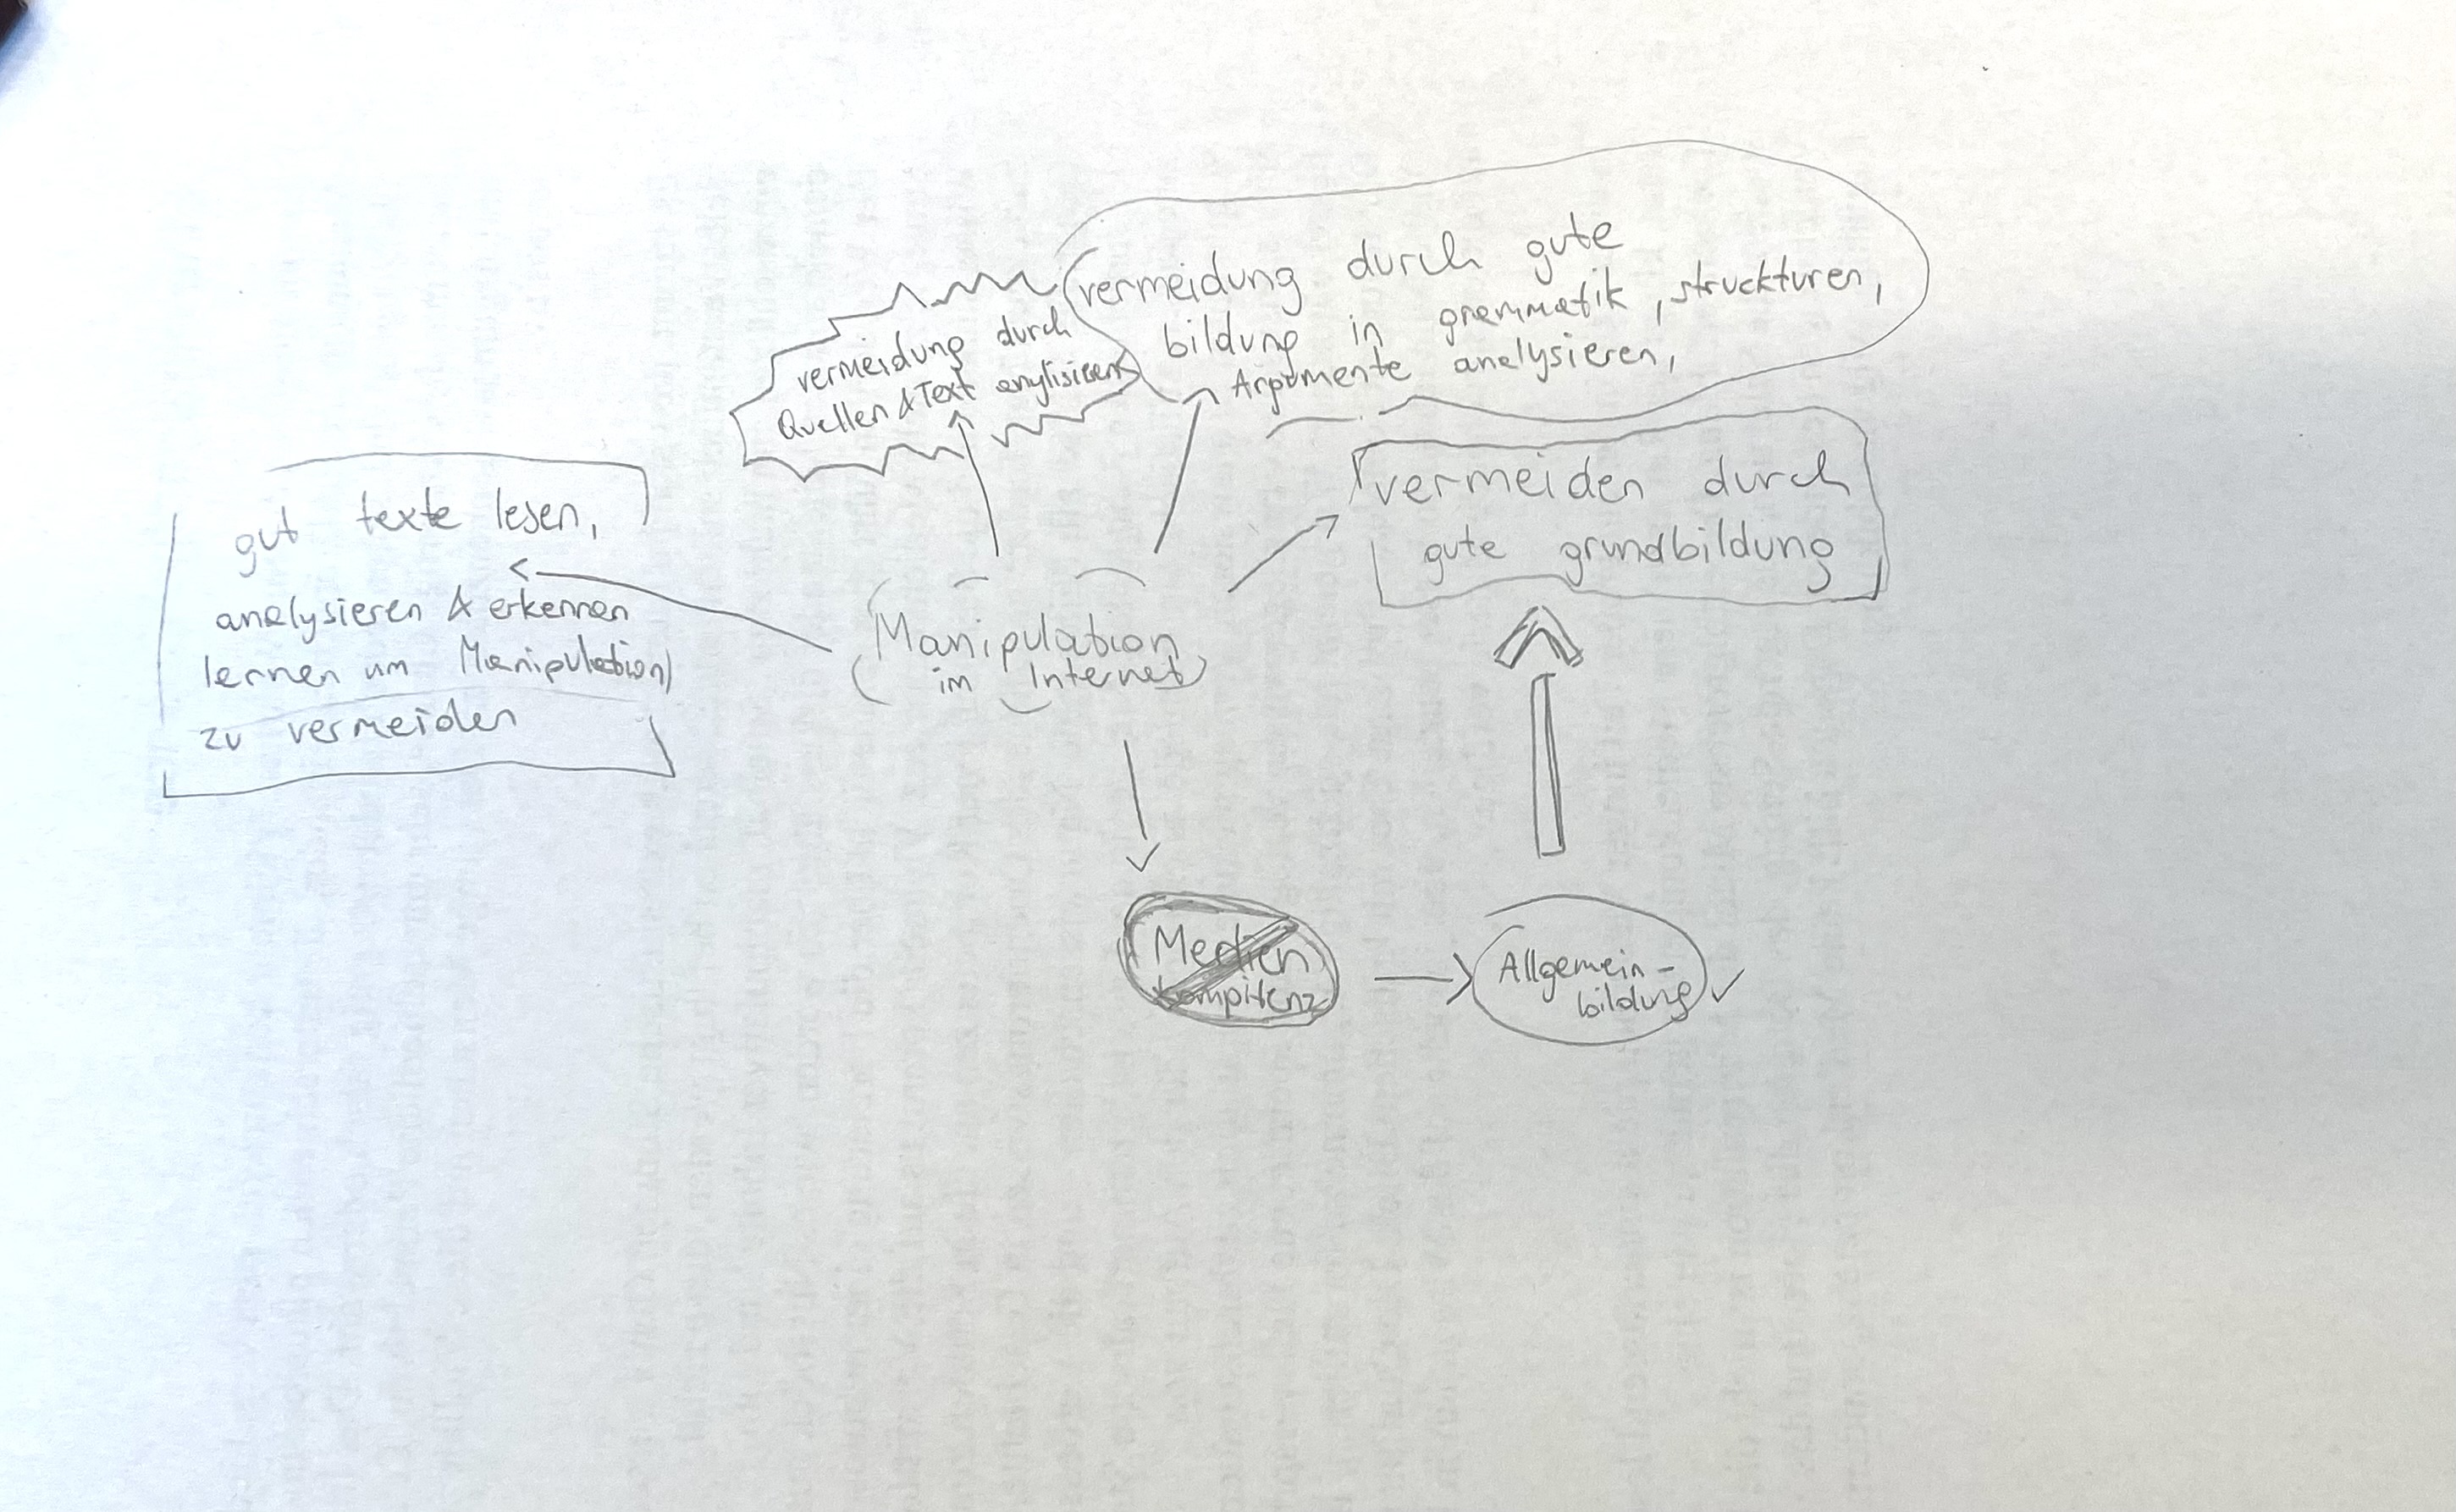 vermeidung durch gute
bildung in grammatik, strukturen,
Argumente analysieren,
vermeidung durch
Quellen & Text anylisieren
vermeiden durch
gute grundbildung
gut texte lesen,
analysieren & erkennen
lernen um Manipulation
zu vermeiden
Manipulation
im Internet
Medien
kompitenz
Allgemein-
bildung ✓